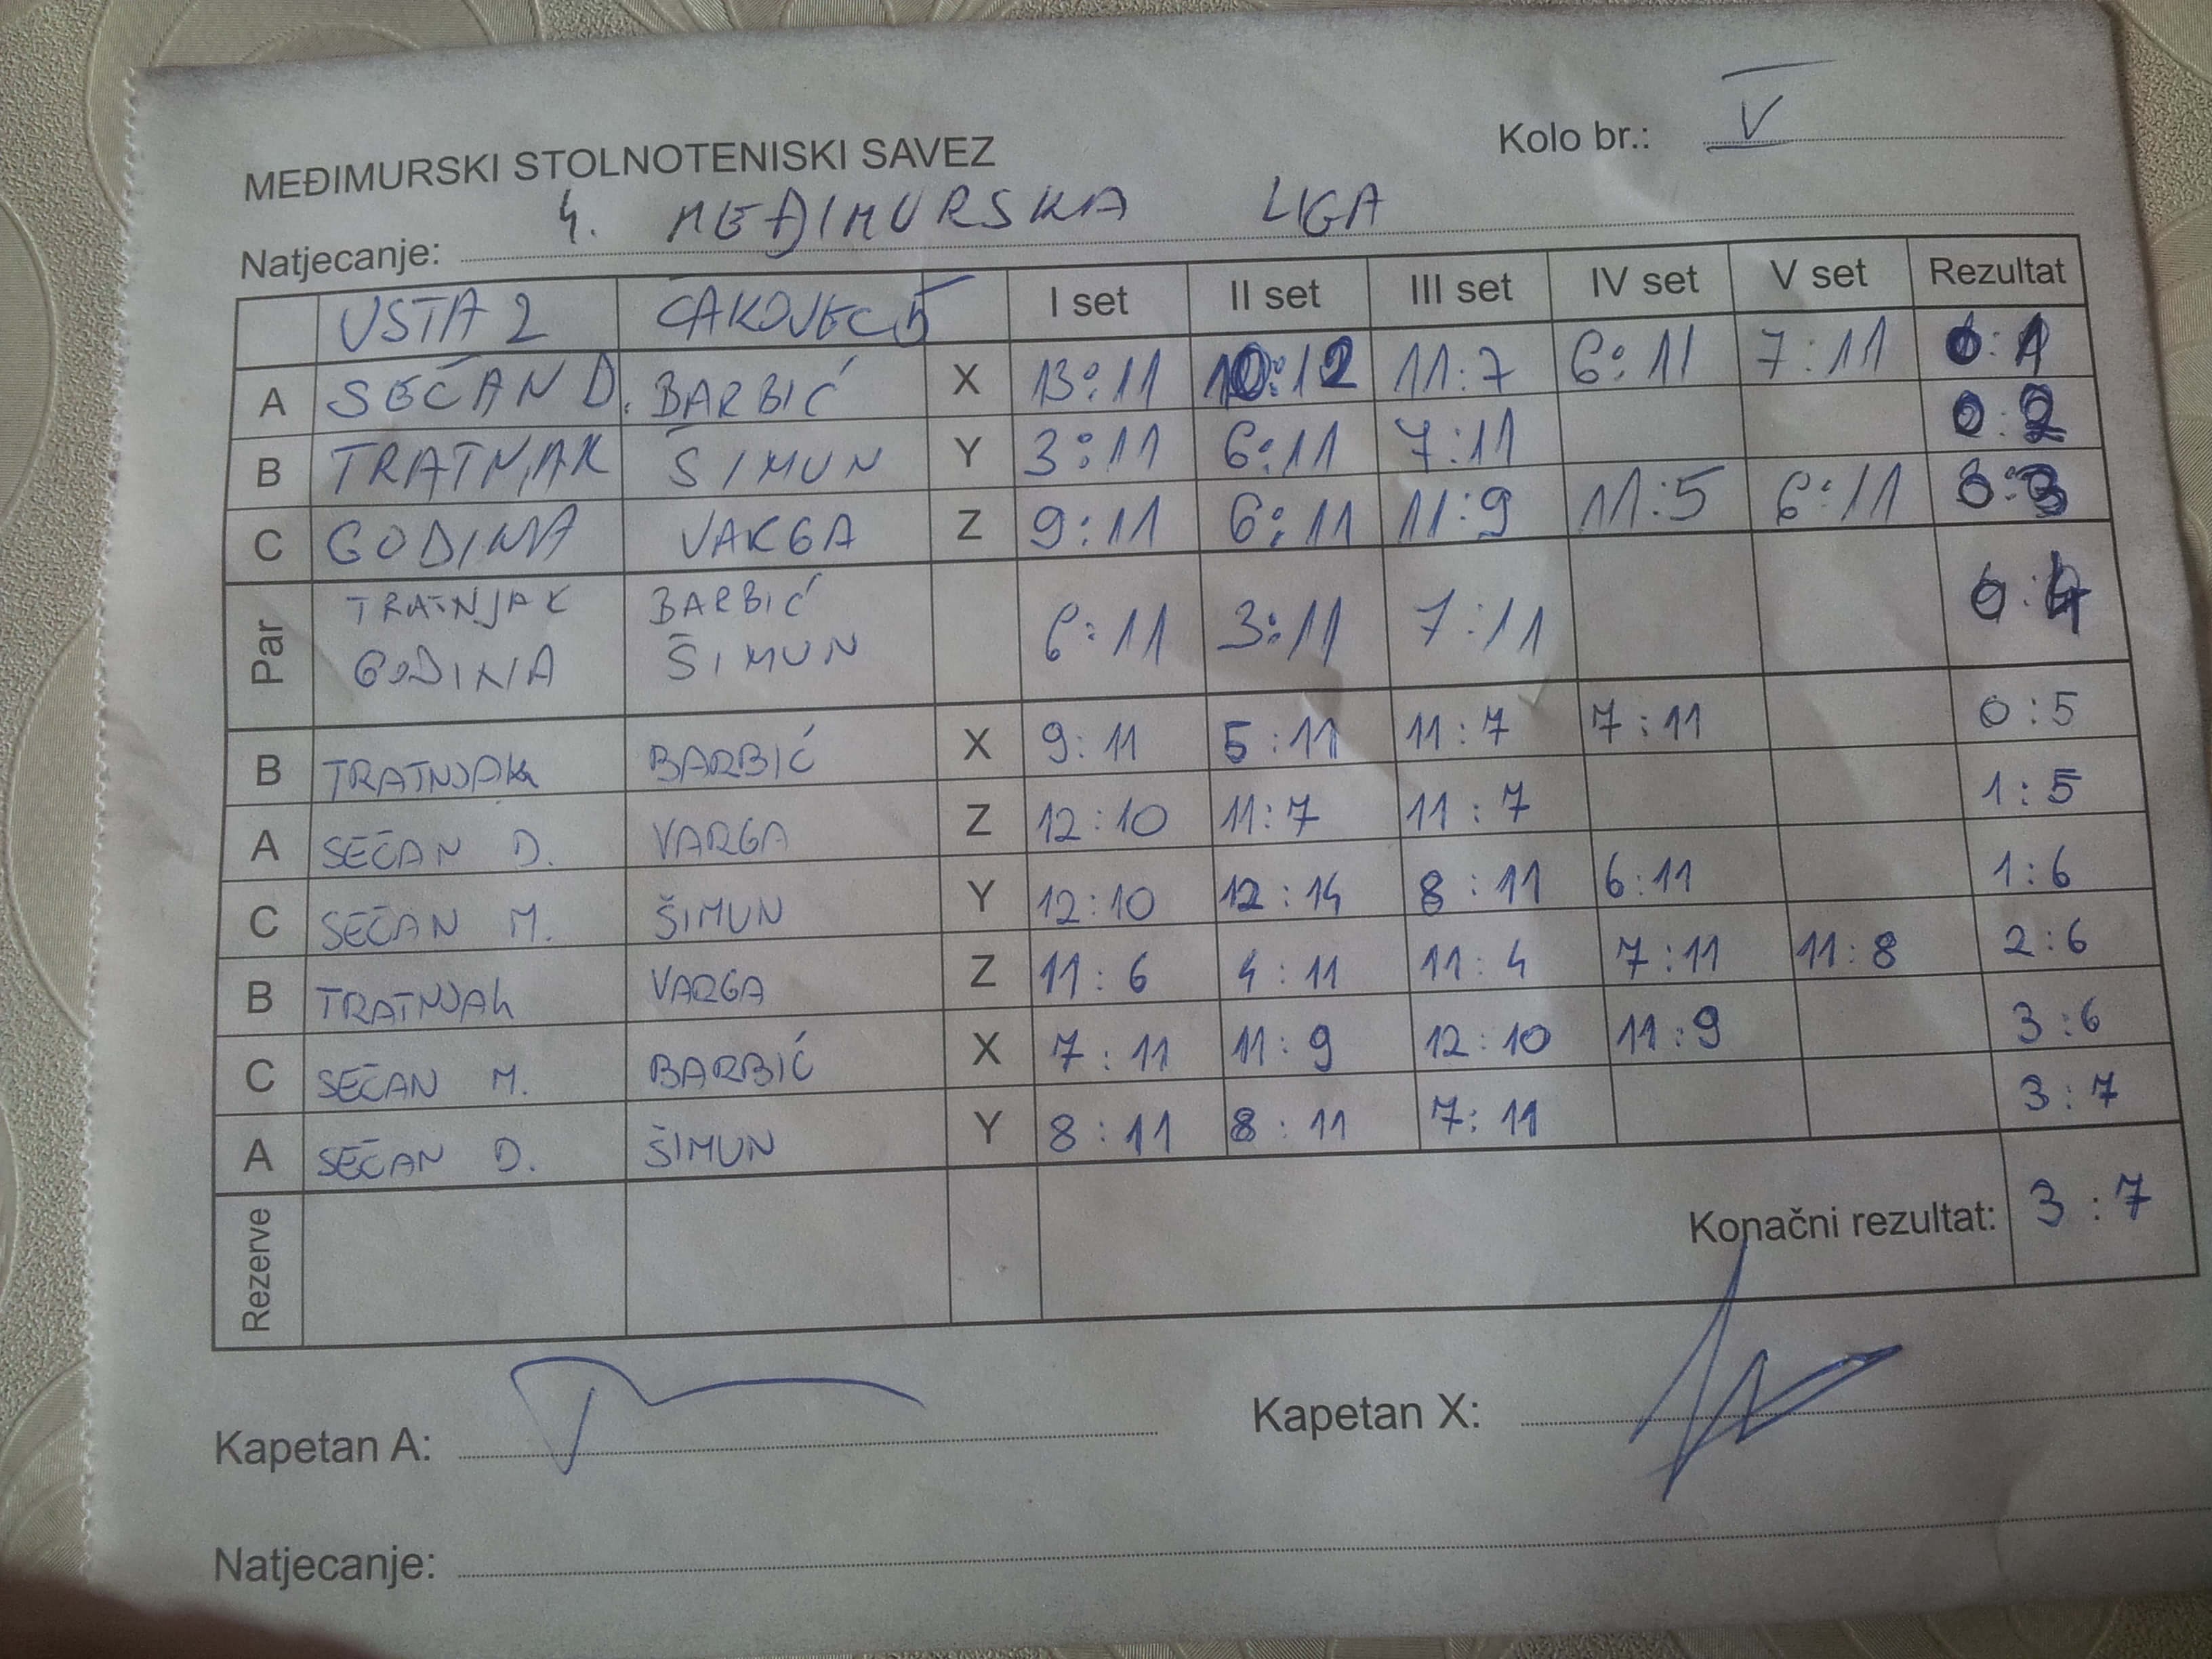 MEĐIMURSKI STOLNOTENISKI SAVEZ
Kolo br.: V
Natjecanje: 4. MEĐIMURSKA LIGA
USTA 2 ČAKOVEC 5 I set II set III set IV set V set Rezultat
A SEČAN D. BARBIĆ X 13:11 10:12 11:7 6:11 7:11 0:1
B TRATNJAK ŠIMUN Y 3:11 6:11 7:11 0:2
C GODINA VARGA Z 9:11 6:11 11:9 11:5 6:11 0:3
Par TRATNJAK BARBIĆ 6:11 3:11 7:11 0:4
GODINA ŠIMUN
B TRATNJAK BARBIĆ X 9:11 5:11 11:7 7:11 0:5
A SEČAN D. VARGA Z 12:10 11:7 11:7 1:5
C SEČAN M. ŠIMUN Y 12:10 12:14 8:11 6:11 1:6
B TRATNJAK VARGA Z 11:6 4:11 11:4 7:11 11:8 2:6
C SEČAN M. BARBIĆ X 7:11 11:9 12:10 11:9 3:6
A SEČAN D. ŠIMUN Y 8:11 8:11 7:11 3:7
Rezerve Konačni rezultat: 3:7
Kapetan A: Kapetan X:
Natjecanje: